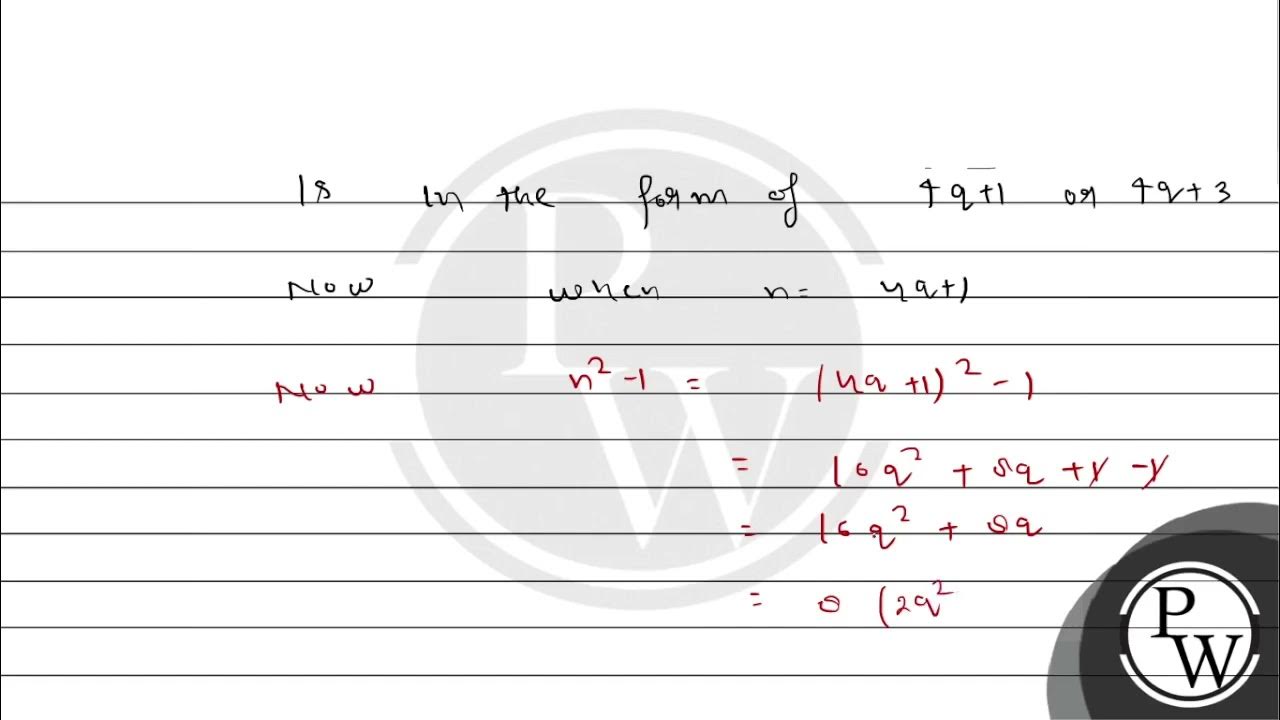 Is in the form of 4q+1 or 4q+3
Now when n= 4q+1
Now n²-1 = (4q+1)²-1
= 16q² + 8q +1 -1
= 16q² + 8q
= 8 (2q²
PW
PW